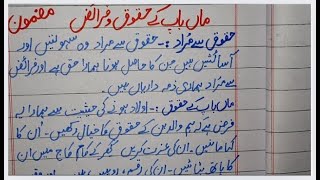 ماں باپ کے حقوق و فرائض مضمون
حقوق سے مراد :- حقوق سے مراد وہ سہولتیں اور
آسائشیں ہیں جن کا حاصل ہونا ہمارا حق ہے اور فرائض
سے مراد ہماری ذمہ داریاں ہیں۔
ماں باپ کے حقوق :- اولاد ہونے کی حیثیت سے ہمارا یہ
فرض ہے کہ ہم والدین کے حقوق کا خیال رکھیں - ان کا
کہا مانیں - ان کی عزت کریں گھر کے کام کاج میں ان
کا ہاتھ بٹائیں - ان کی